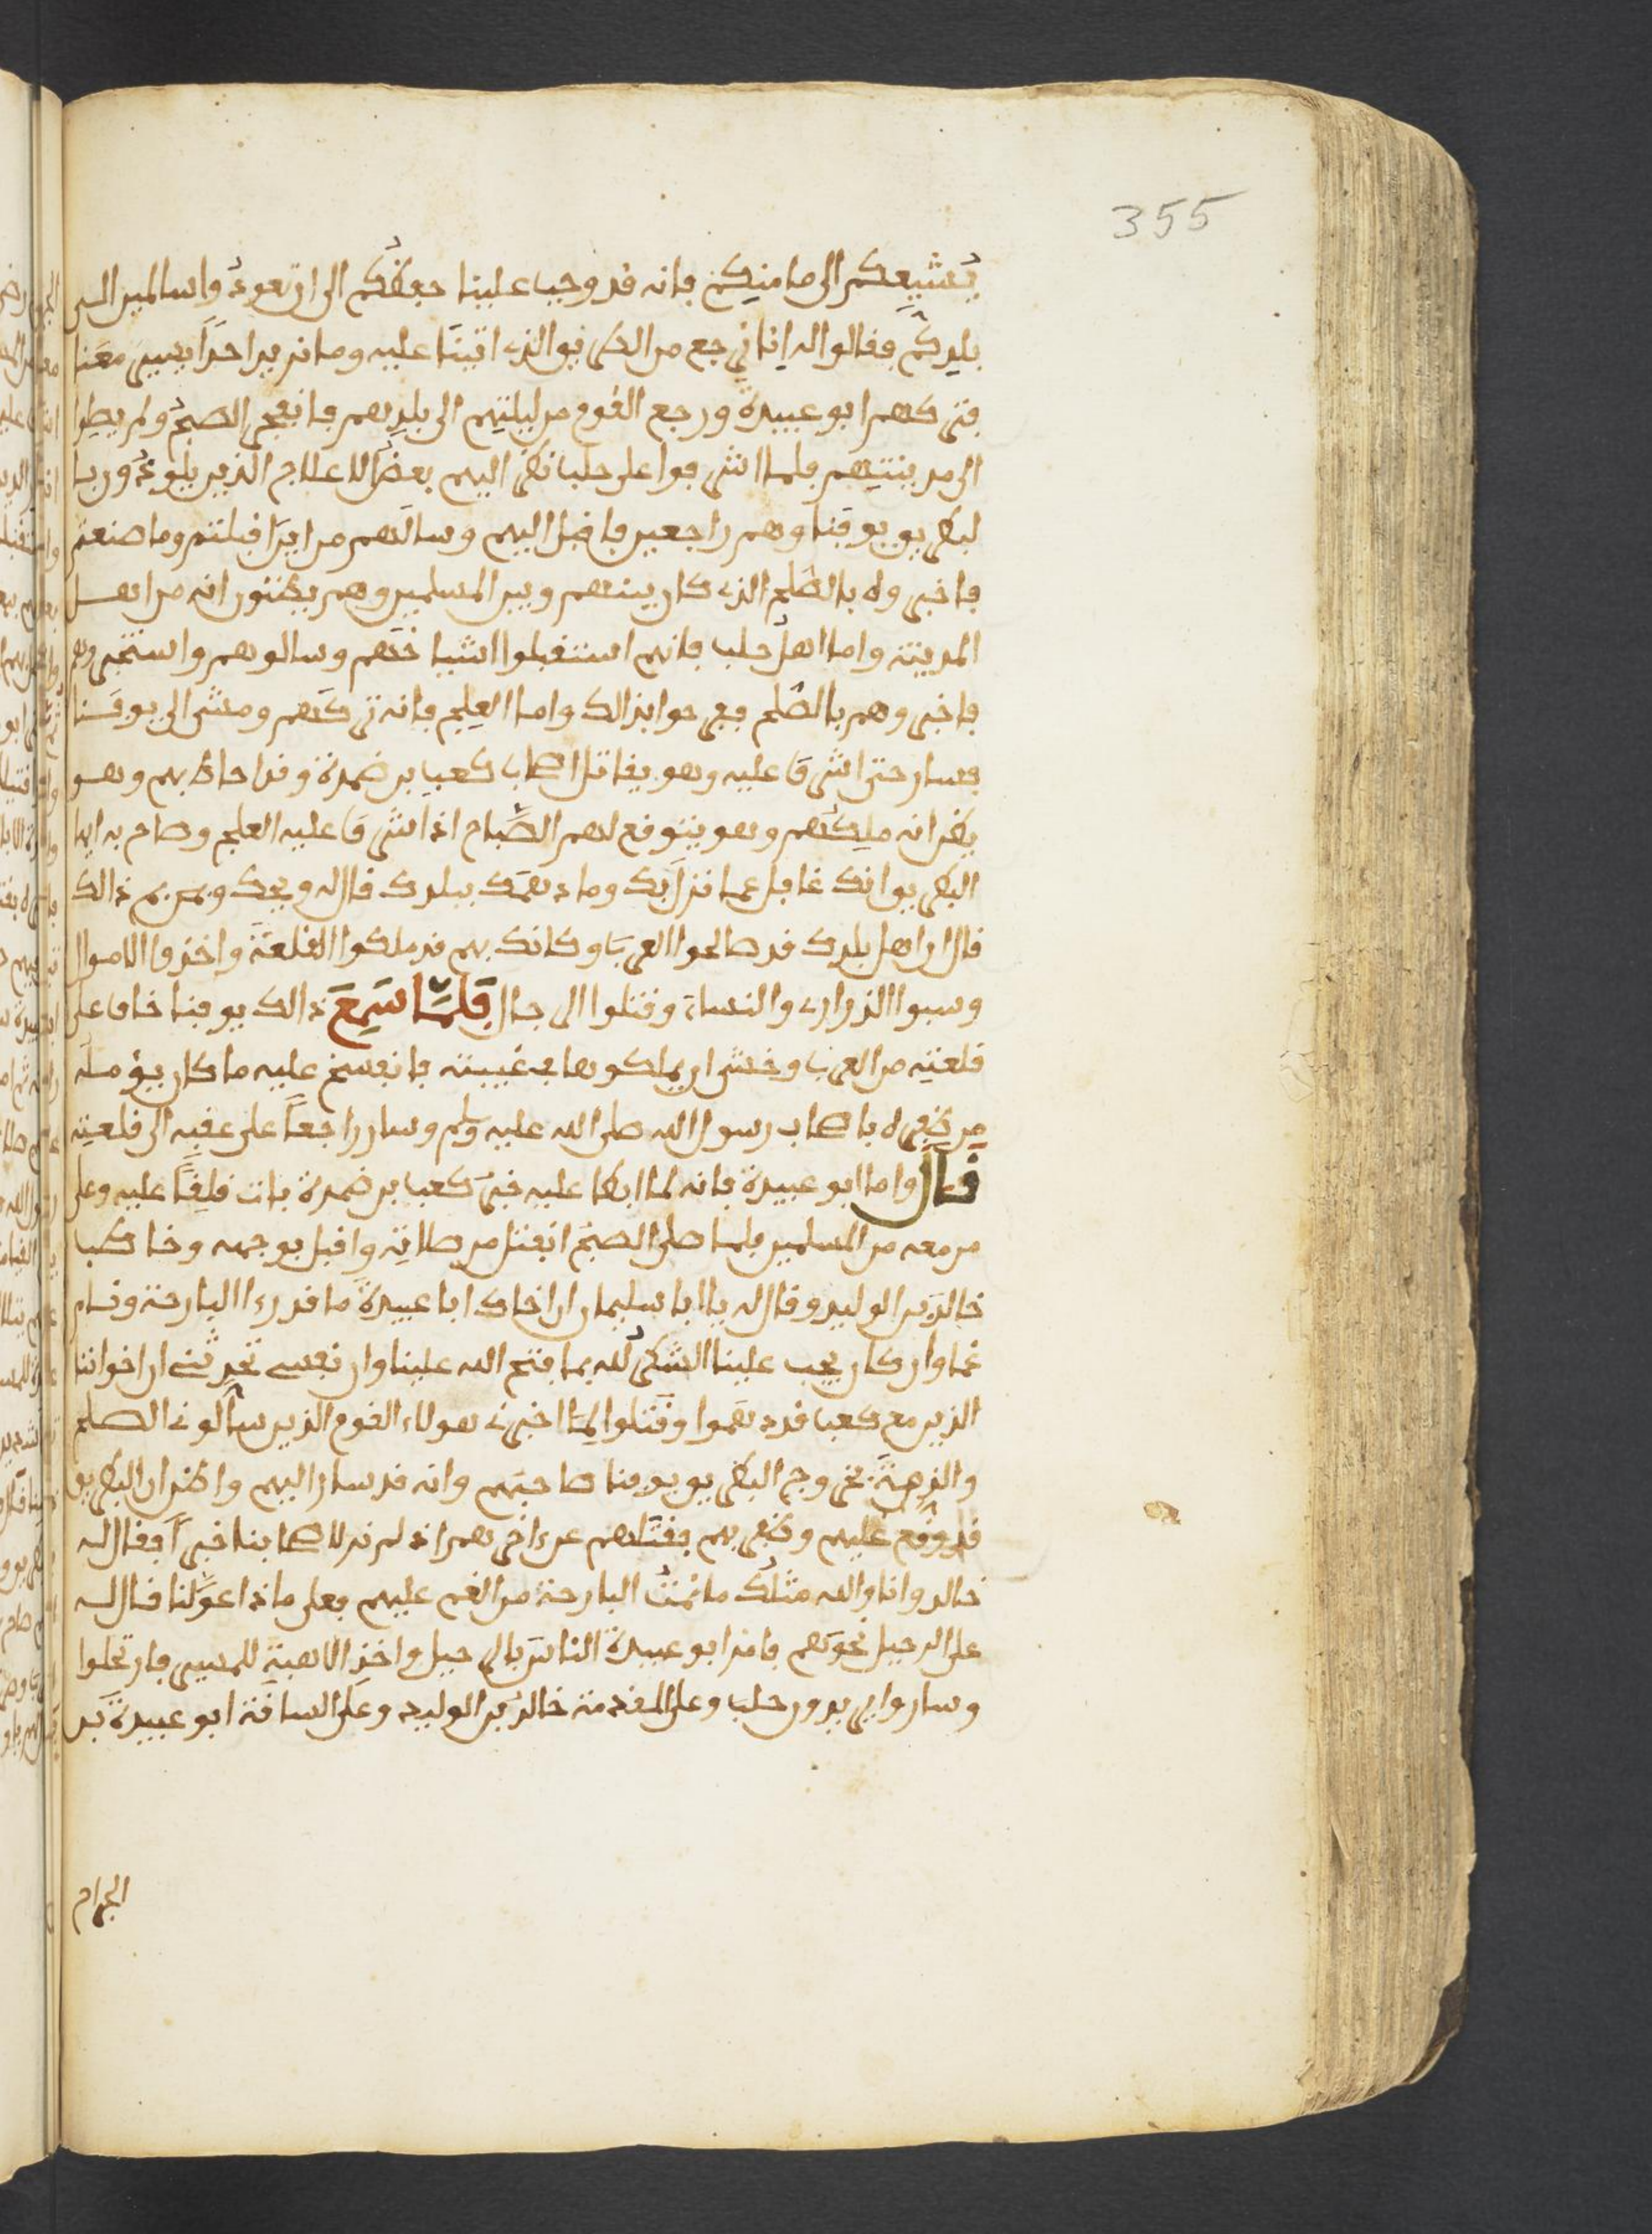 355
يشيعكم الى مامنكم فانه قد وجب علينا حفظكم الى ان تعودوا سالمين الى
بلدكم فقالوا له انا نرجع من الطريق الذي اتينا عليه وما نريد احدا يسير معنا
فتركهم ابو عبيدة ورجع القوم من ليلتهم الى بلدهم فانفجر الصبح ولم يصلوا
الى مدينتهم فلما اشرفوا على حلب نظر اليهم بعض الاعلاج الذين يلوذون بالـ
لبطريق يوقنا وهم راجعين فاقبل اليهم وسالهم من اين اقبلتم وما صنعتم
فاخبروه بالصلح الذي كان بينهم وبين المسلمين وهم يظنون انه من اهل
المدينة واما اهل حلب فانهم استقبلوا اشياخهم وسالوهم واستخبروهم
فاخبروهم بالصلح ففرحوا بذالك واما العلج فانه تركهم ومشى الى يوقنا
فسار حتى اشرف عليه وهو يقاتل اصحاب كعب بن ضمرة وقد احاط بهم وهو
يظن انه ملكهم وهو يتوقع لهم الصباح اذ اشرف عليه العلج وصاح به ايها
البطريق انك غافل عما نزل بك وما دهمك ببلدك قال له ويحك وبمن بم ذالك
قال ان اهل بلدك قد صالحوا العرب وكانك بهم قد ملكوا القلعة واخذوا الاموال
وسبوا الذراري والنساء وقتلوا الرجال فلما سمع ذالك يوقنا خاف على
قلعته من العرب وخشى ان يملكوها في غيبته فانفسخ عليه ما كان يؤمله
من ظفره باصحاب رسول الله صلى الله عليه وسلم وسار راجعا على عقبه الى قلعته
قال واما ابو عبيدة فانه لما ابطا عليه خبر كعب بن ضمرة بات قلقا عليه وعلى
من معه من المسلمين فلما صلى الصبح انفتل من صلاته واقبل بوجهه وخاطب
خالد بن الوليد وقال له يا ابا سليمان ان اخاك ابا عبيدة ما قد رءا البارحة وتسام
غما وان كان يجب علينا الشكر لله بما فتح الله علينا وان نفسى تحدثنى ان اخواننا
الذين مع كعب قد دهموا وقتلوا لما اخبرنى هولاء القوم الذين سالونى الصلح
والذمة بخروج البطريق يوقنا صاحبهم وانه قد سار اليهم واظن ان البطريق
قد وقع عليهم وظفر بهم فقتلهم عن ءاخرهم اذ لم نر لاصحابنا خبرا فقال له
خالد وانا والله مثلك ما نمت البارحة من الغم عليهم فعلى ماذا عولنا قال له
على الرحيل نحوهم فامر ابو عبيدة الناس بالرحيل واخذ الاهبة للمسير فارتحلوا
وساروا يريدون حلب وعلى المقدمة خالد بن الوليد وعلى الساقة ابو عبيدة بن
الجراح